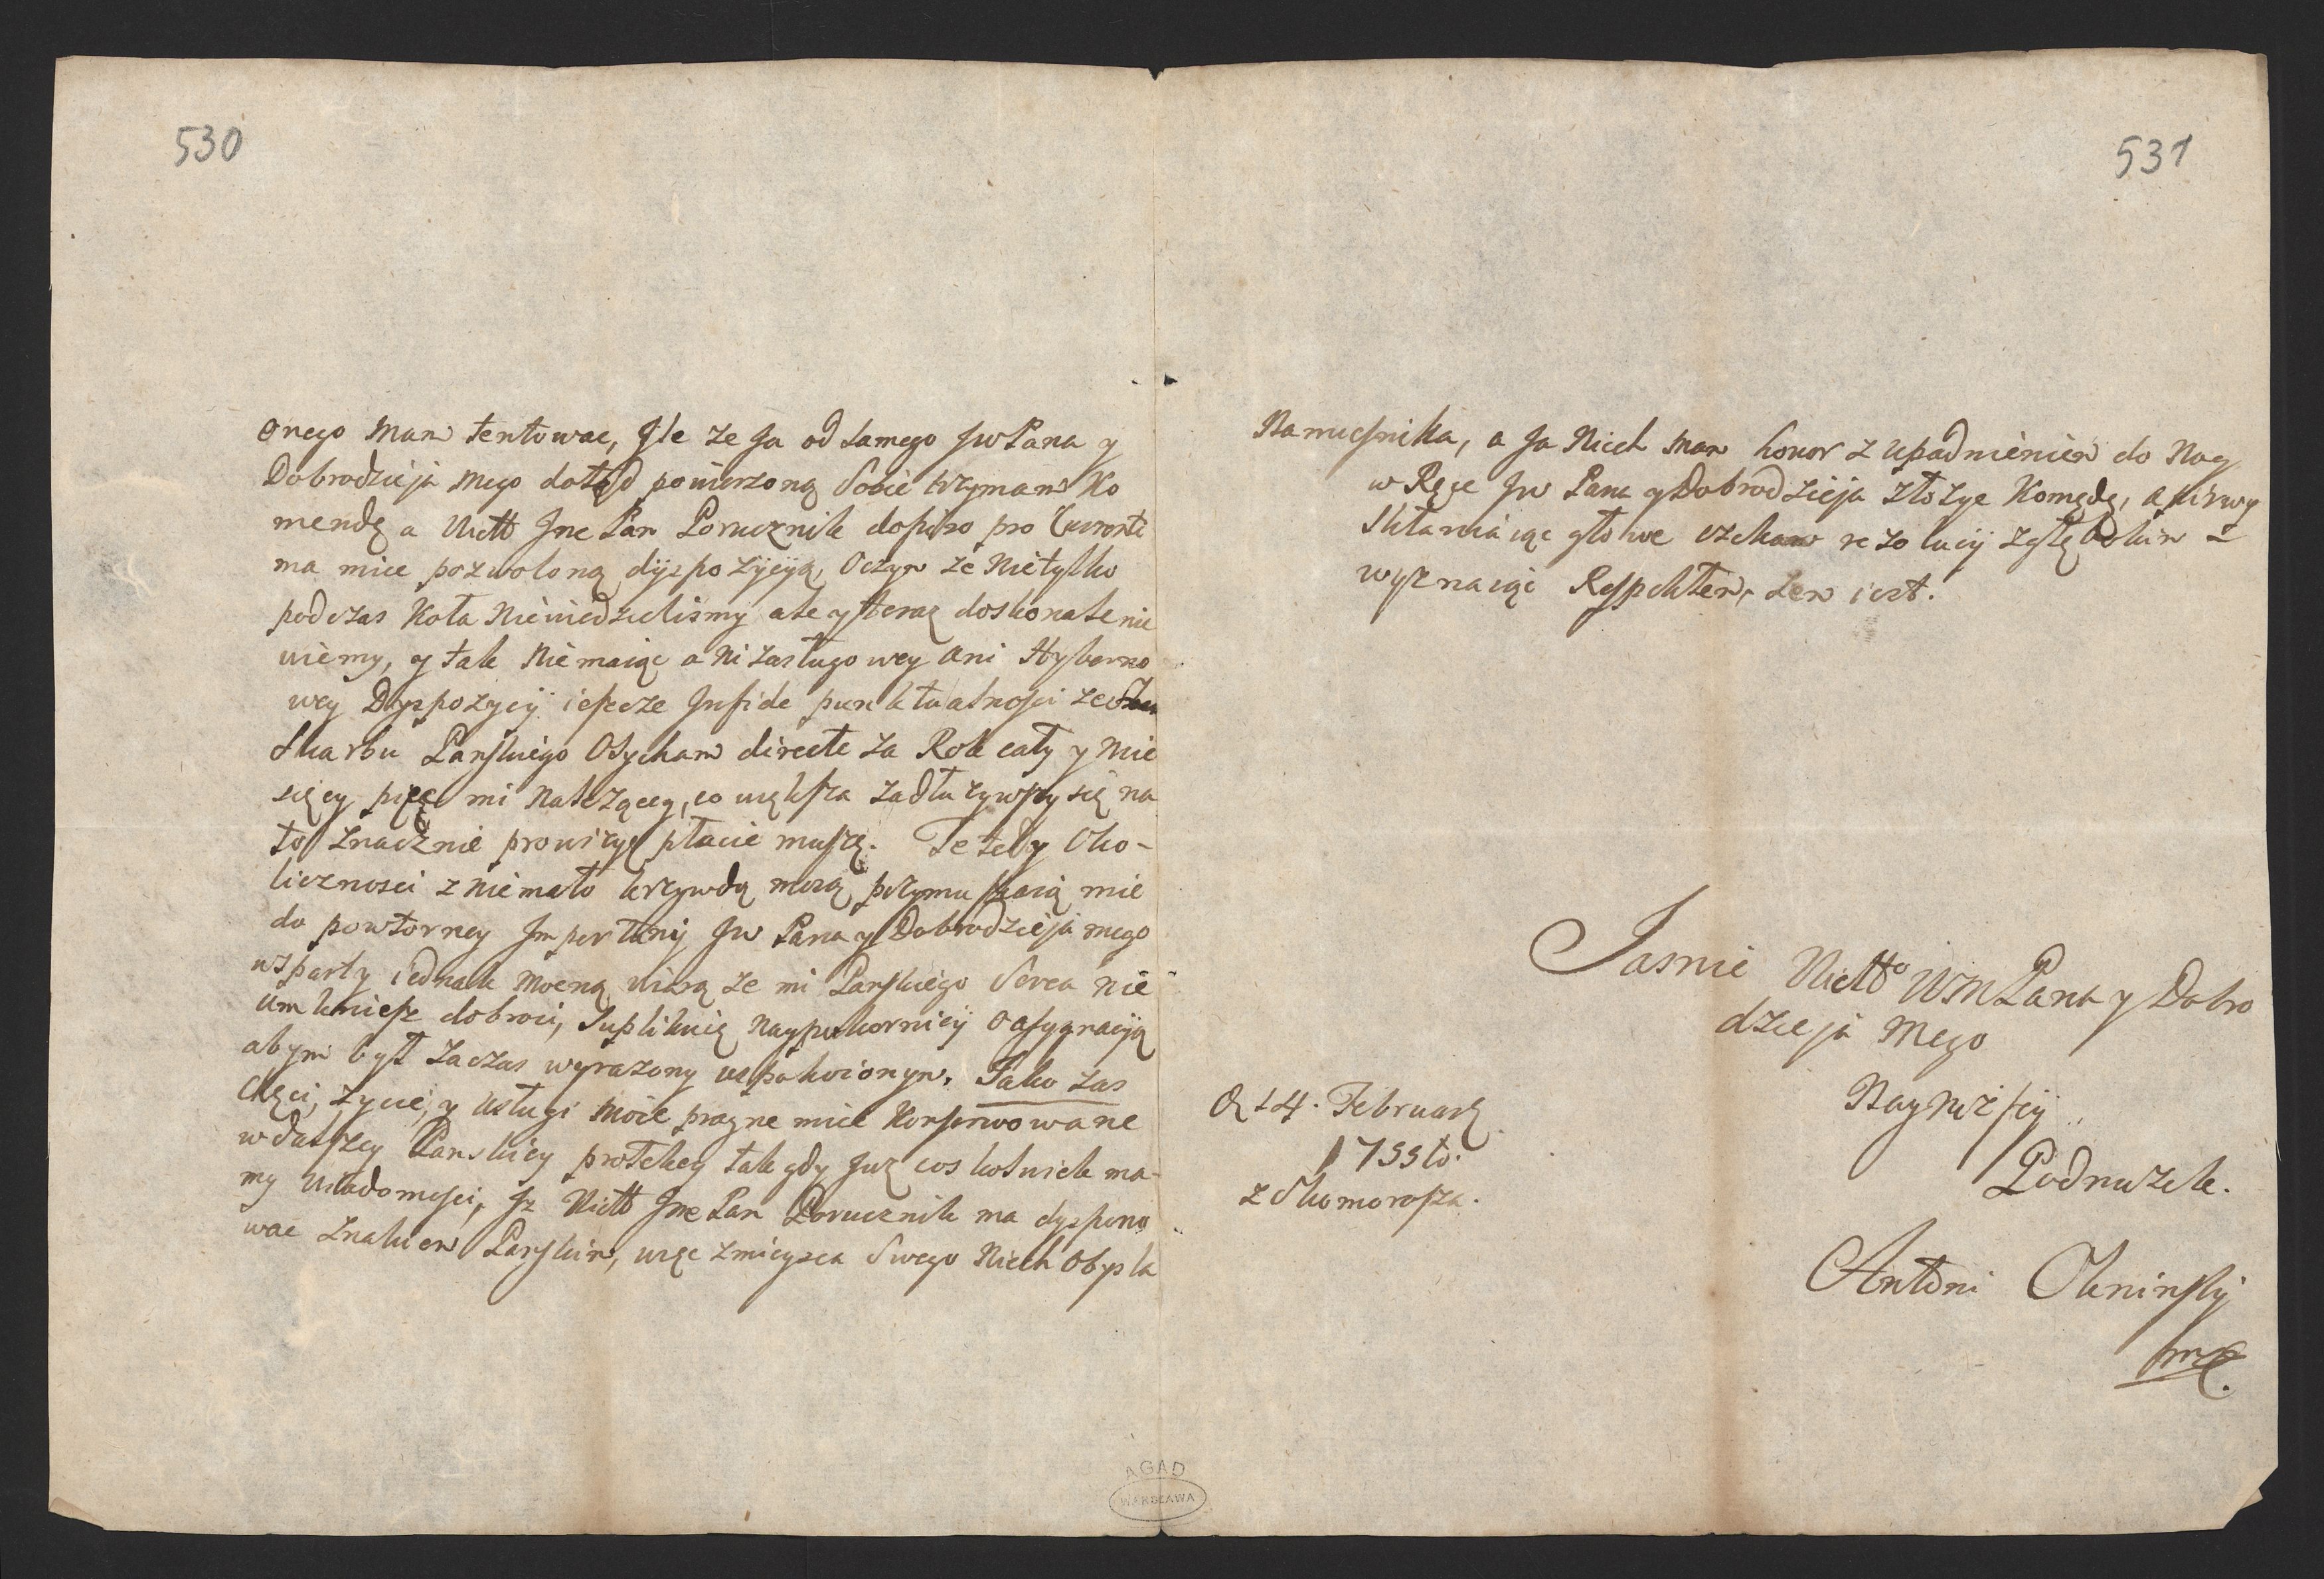 530
onego mam tentowac, Jle ze Ja od samego JwPana y
Dobrodzieja mego dotąd powierzoną Sobie trzymam Ko
mendę a Wielb Jmc Pan Porucznik dopiro pro
ma miec pozwoloną dyspozycyą, Oczym ze nietylko
podczas Koła niewiedzielismy ale y teraz doskonale nie
wiemy, y tak nie maiąc ani zasługowey ani Hyberno
wey Dyspozycij ieszcze Jnfide punktualnosci ze
Skarbu Panskiego Odycham directe za Rok cały y mie
sięcy pięc mi należącey, co większa zadłużywszy się na
to znacznie prowizyę płacic muszę. Te tedy Oko-
licznosci z niemało krzywdą moią przymuszaią mie
do powtorney Jmportunij Jw Pana y Dobrodzieja mego
wsparty iednak mocną wiarą ze mi Panskiego Serca nie
umkniesz dobroci, Suplikuię naypokorniey o asygnacyą
abym był zaczas wyrazony uspokoionym. Jako zas
Chęci, zycie, y usługi moie pragne miec Konserwowane
w dalszey Panskiey protekcy tak gdy Juz cos kolwiek ma-
my wiadomosci, Jz Wielb Jmc Pan Porucznik ma dyspono
wac Znakiem Panskim, więc zmieysca Swego Niech Obysla
531
Namiesnika, a Ja Niech mam honor z upadnieniem do Nog
w Ręce Jw Pana y Dobrodzieja złozyc Komędę, a
Skłaniaiąc głowe czekam rezolucij z
wyznaiąc Respektem, zem iest.
Jasnie Wielbo WMPana y Dobro
dzieja Mego
Nayniższy
Podnużek.
Antoni Okninsky
mp.
D 14. Februarij
1755to.
z Skomorosza.
AGAD
WARSZAWA